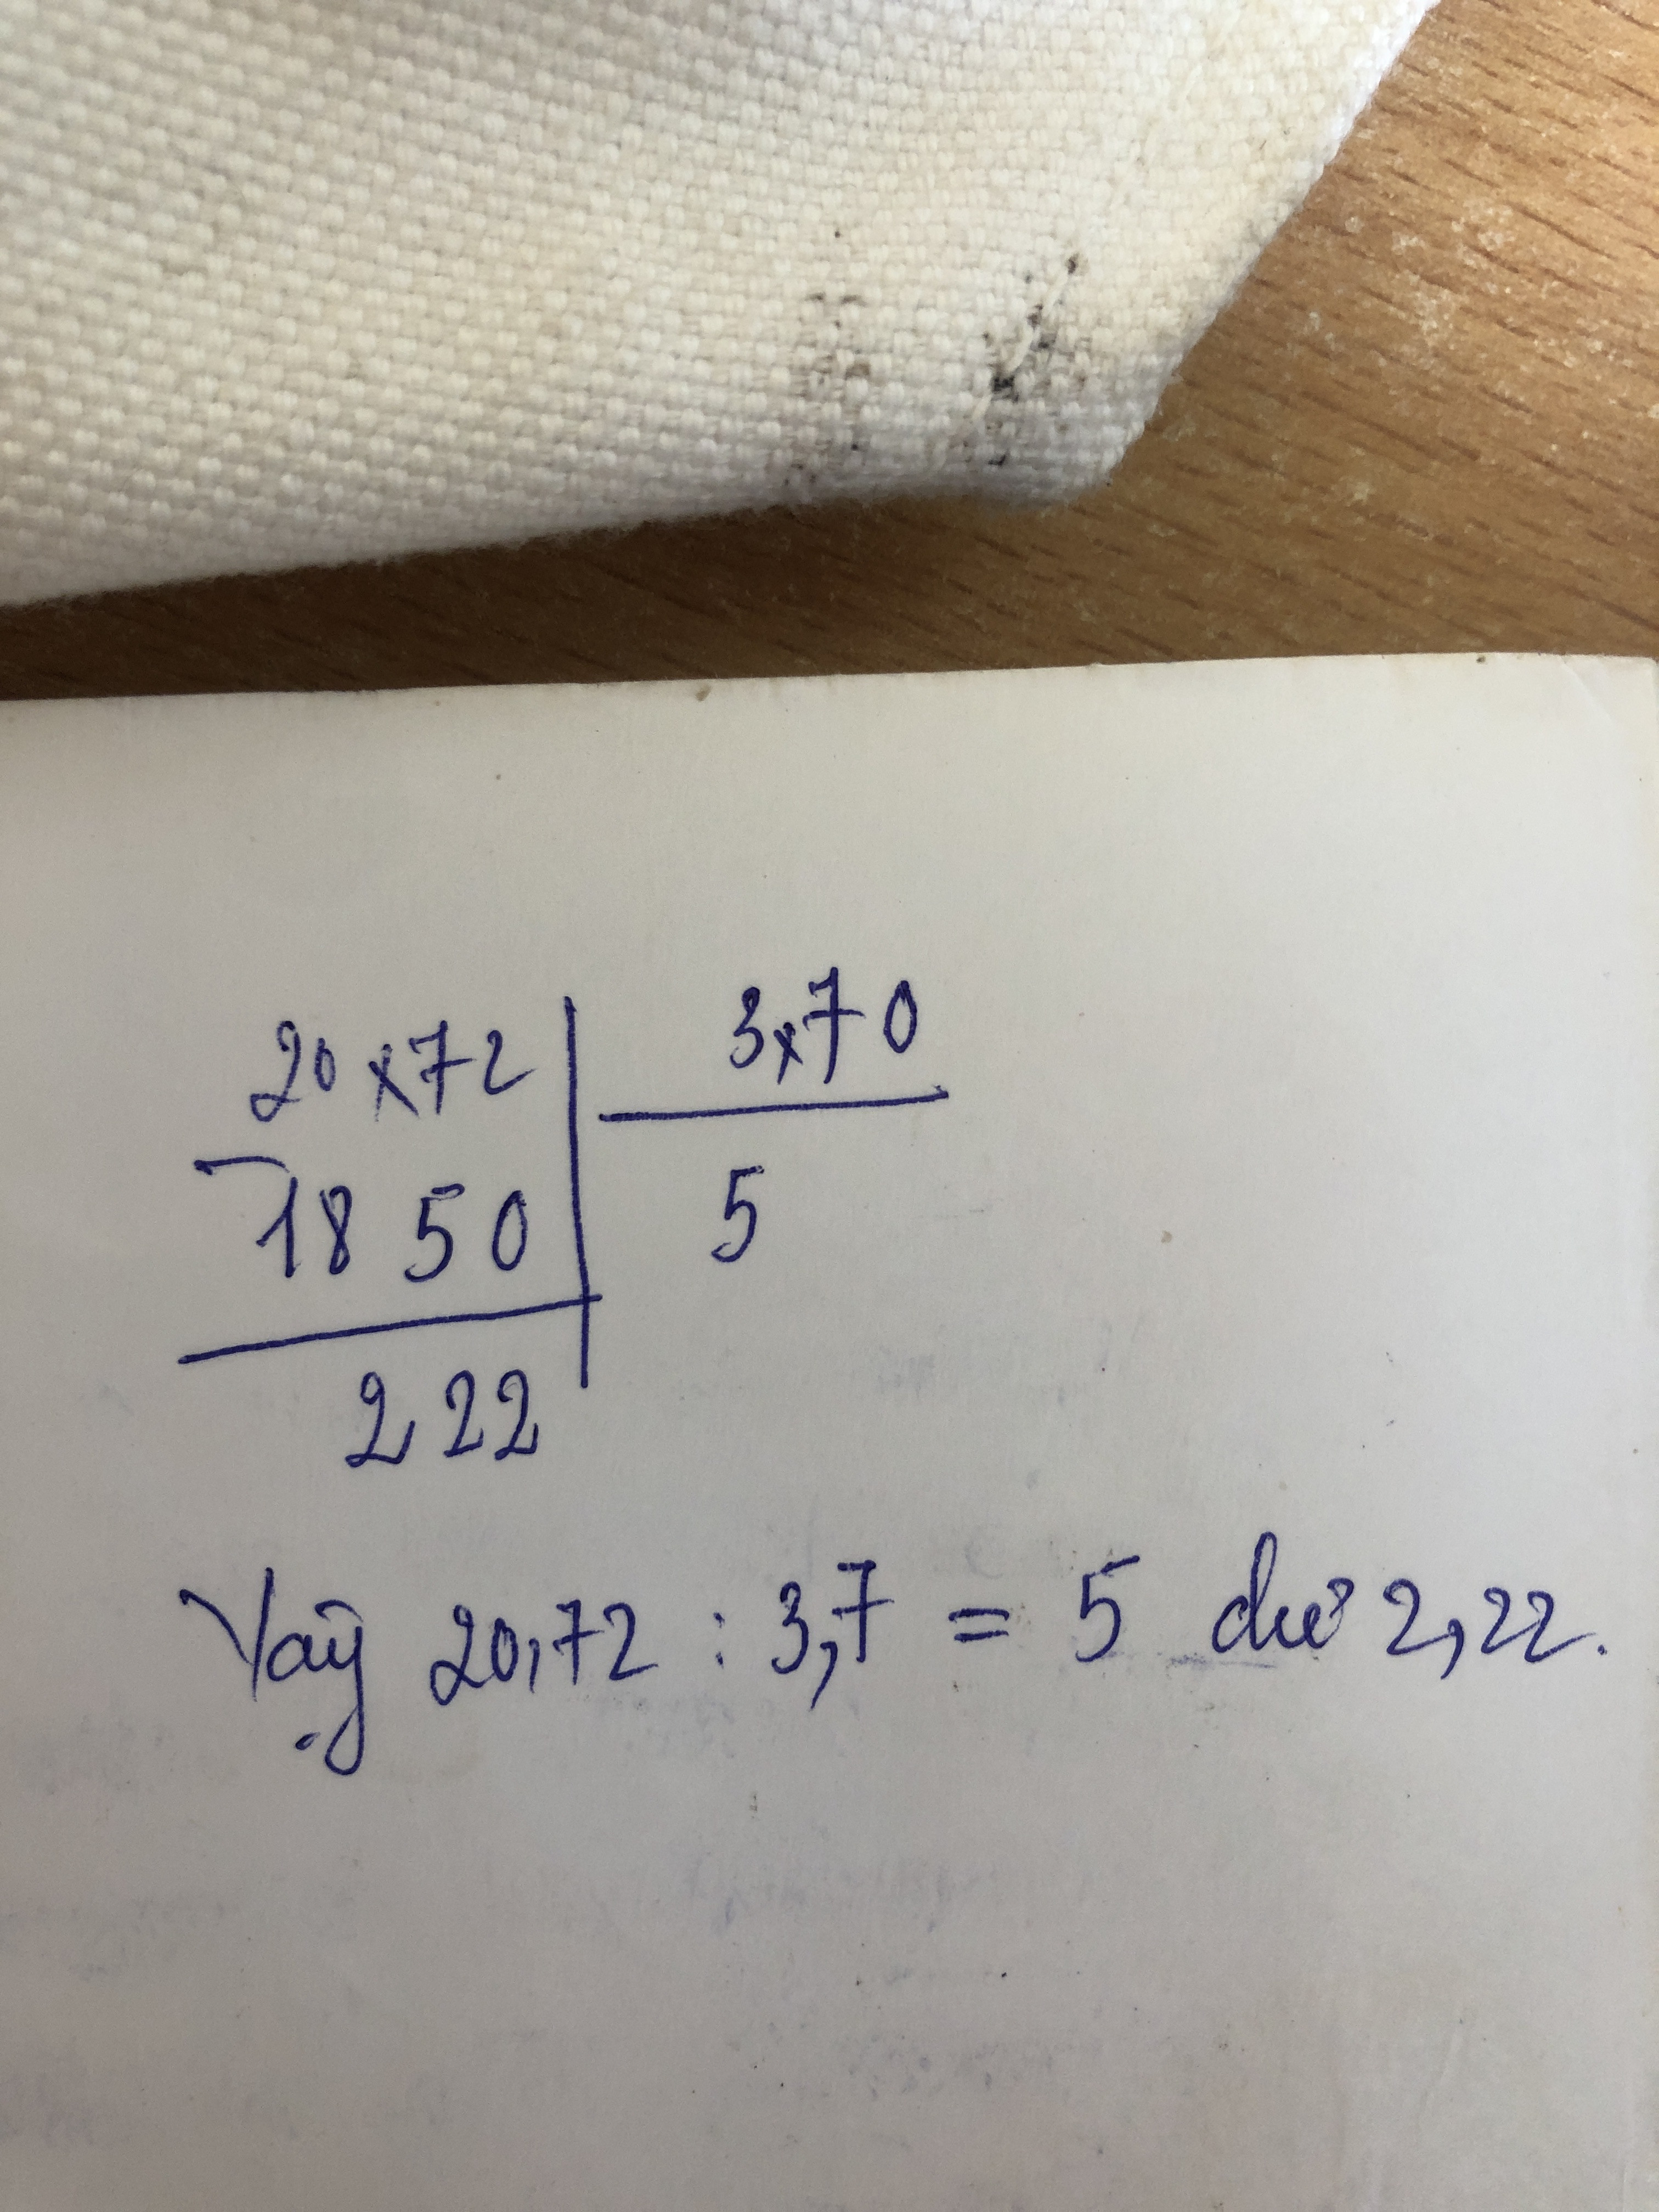 20x72 3x70
- 1850 5
222
Vậy 20,72 : 3,7 = 5 dư 2,22.